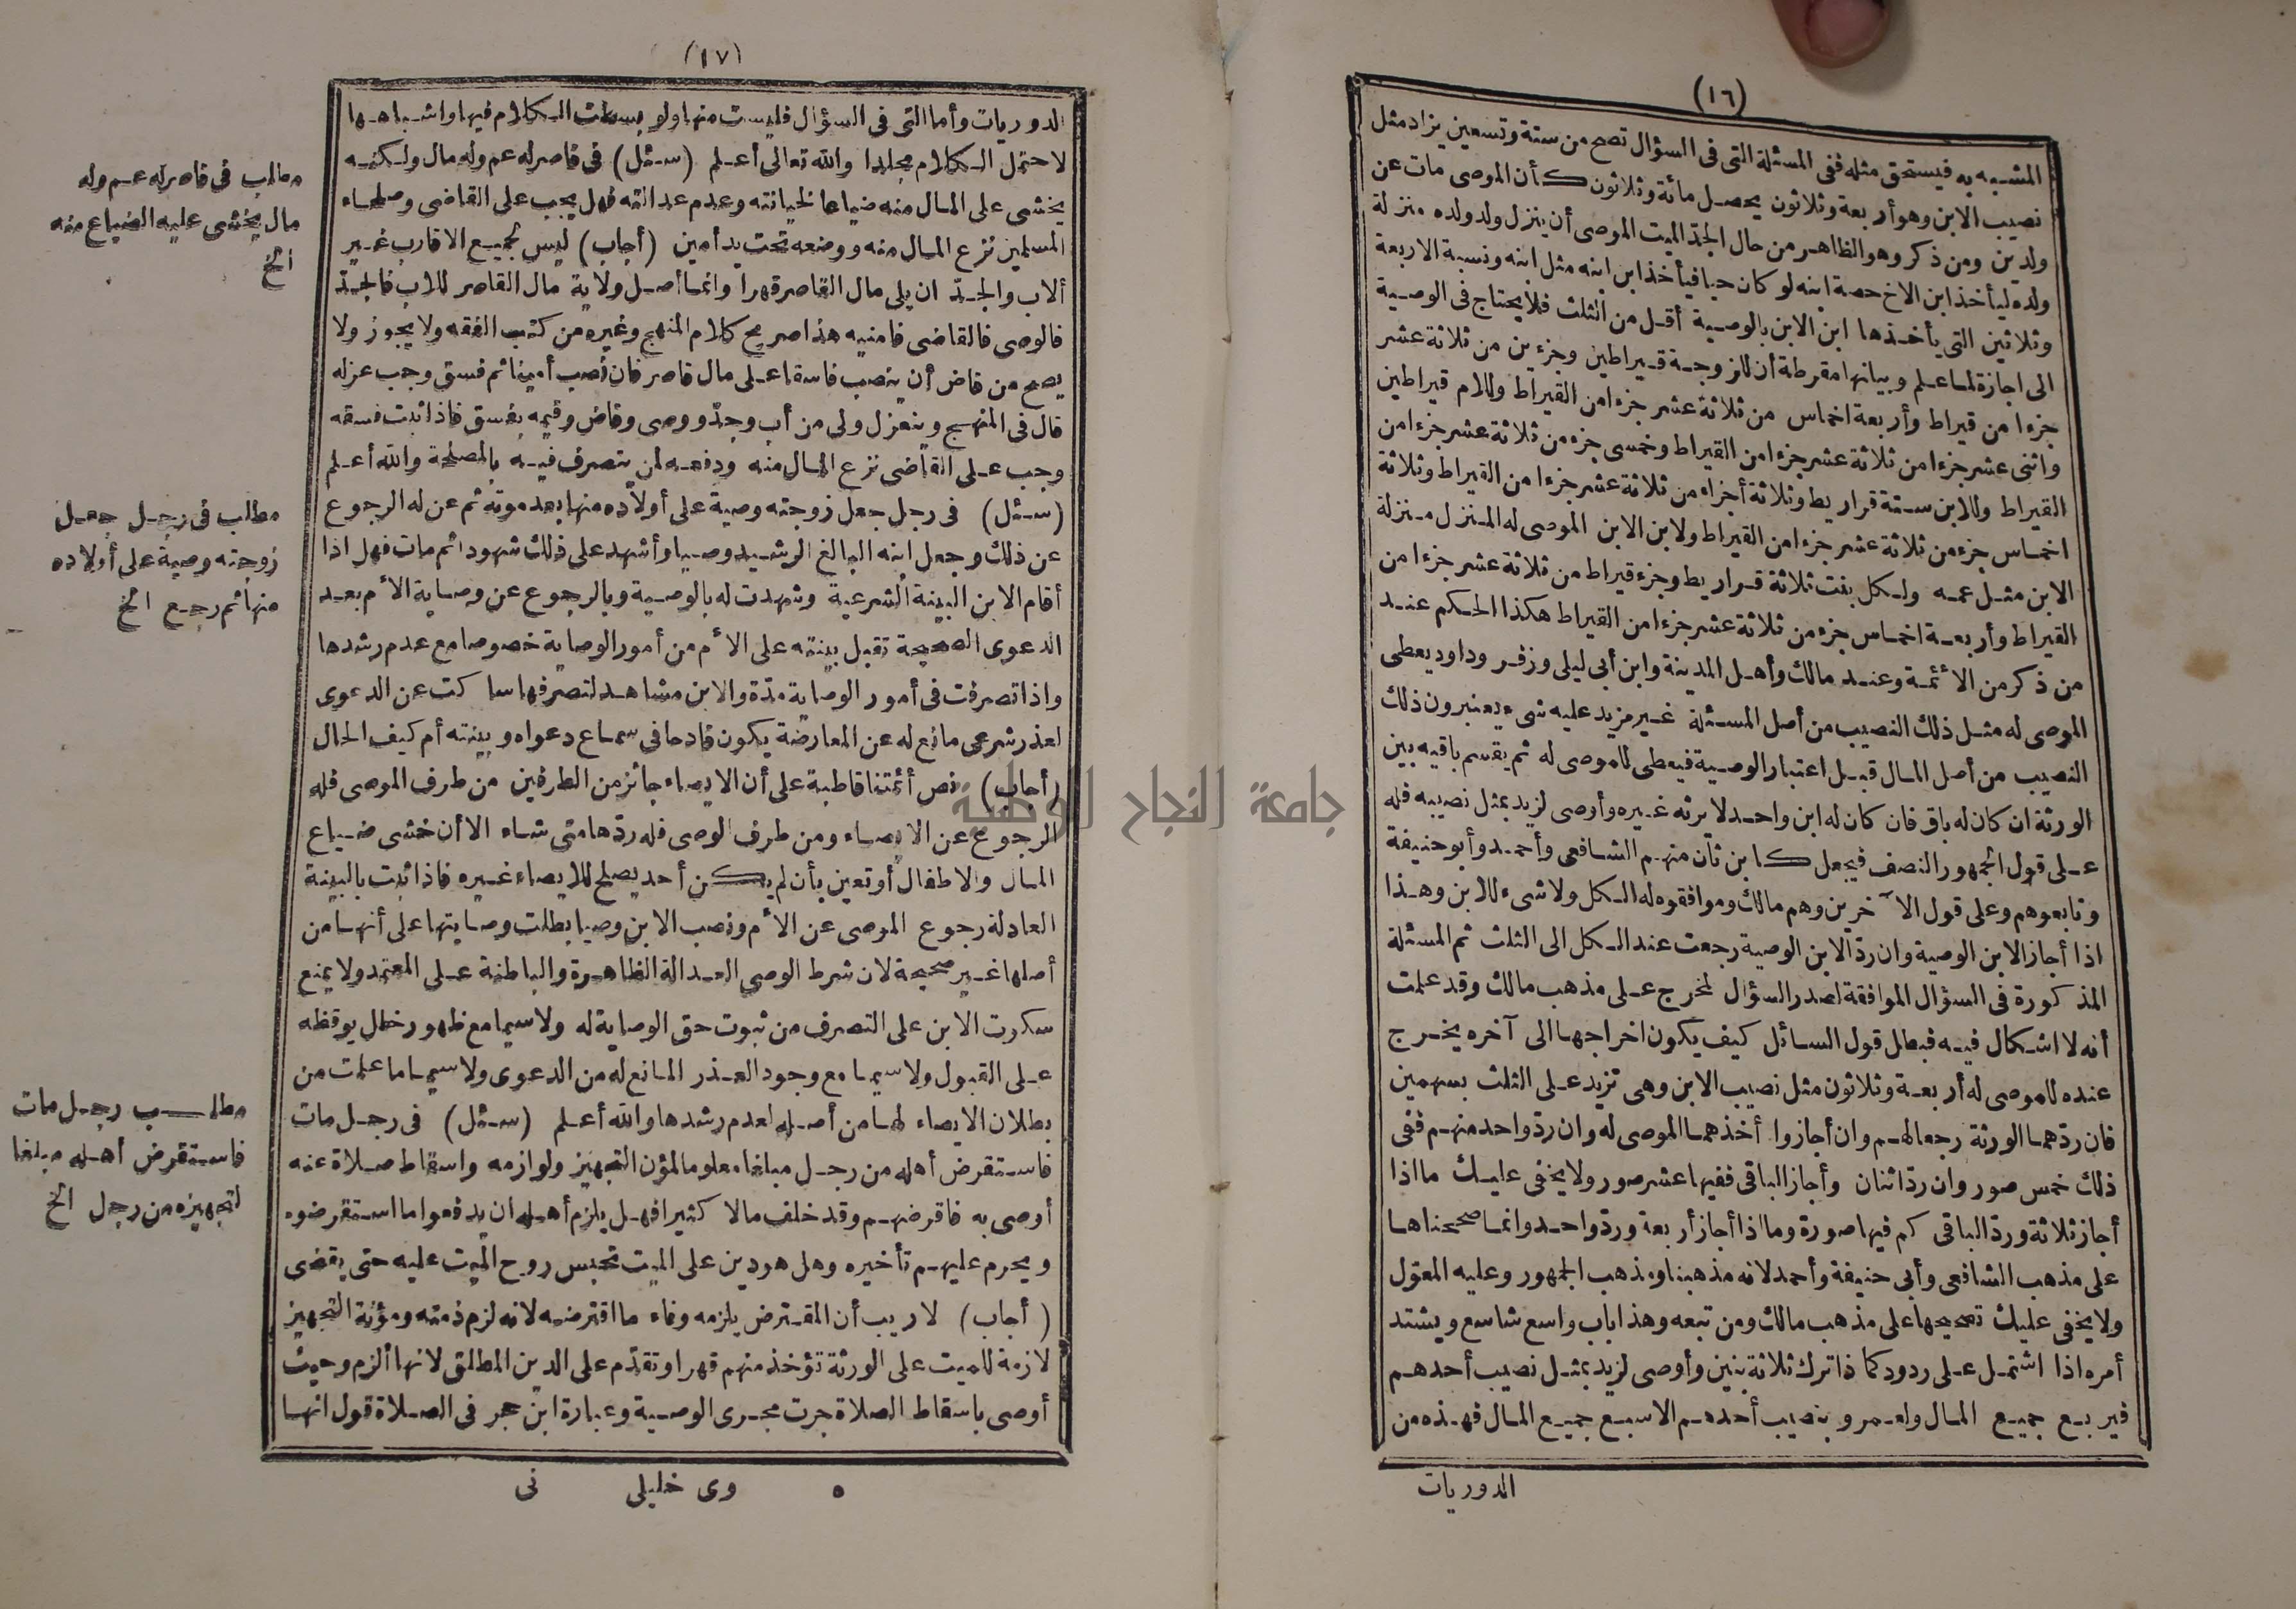 (١٦)
المشبه به فيستحق مثله ففى المسئلة التى فى السؤال تصح من ستة وتسعين يزاد مثل
نصيب الابن وهو أربعة وثلاثون يحصل مائة وثلاثون كأن الموصى مات عن
ولدين ومن ذكر وهو الظاهر من حال الجد الميت الموصى أن ينزل ولد ولده منزلة
ولده ليأخذ ابن الاخ حصة ابنه لو كان حيا فيأخذ ابن ابنه مثل ابنه ونسبة الاربعة
وثلاثين التى يأخذها ابن الابن بالوصية أقل من الثلث فلا يحتاج فى الوصية
الى اجازة لما علم وبيانها مقرطة أن للزوجة قيراطين وجزءين من ثلاثة عشر
جزءا من قيراط وأربعة اخماس من ثلاثة عشر جزءا من القيراط وللام قيراطين
واثنى عشر جزءا من ثلاثة عشر جزءا من القيراط وخمسى جزء من ثلاثة عشر جزءا من
القيراط وللابن ستة قراريط وثلاثة أجزاء من ثلاثة عشر جزءا من القيراط وثلاثة
اخماس جزء من ثلاثة عشر جزءا من القيراط ولابن الابن الموصى له المنزل منزلة
الابن مثل عمه ولكل بنت ثلاثة قراريط وجزء قيراط من ثلاثة عشر جزءا من
القيراط وأربعة اخماس جزء من ثلاثة عشر جزءا من القيراط هكذا الحكم عند
من ذكر من الأئمة وعند مالك وأهل المدينة وابن أبى ليلى وزفر وداود يعطى
الموصى له مثل ذلك النصيب من أصل المسئلة غير مزيد عليه شىء يعتبرون ذلك
النصيب من أصل المال قبل اعتبار الوصية فيعطى للموصى له ثم يقسم باقيه بين
الورثة ان كان له باق فان كان له ابن واحد لا يرثه غيره وأوصى لزيد بمثل نصيبه فله
على قول الجمهور النصف فيجعل كابن ثان منهم الشافعى وأحمد وأبو حنيفة
وتابعوهم وعلى قول الآخرين وهم مالك وموافقوه له الكل ولا شىء للابن وهذا
اذا أجاز الابن الوصية وان رد الابن الوصية رجعت عند الكل الى الثلث ثم المسئلة
المذكورة فى السؤال الموافقة لصدر السؤال لمخرج على مذهب مالك وقد علمت
أنه لا اشكال فيه فبطل قول السائل كيف يكون اخراجها الى آخره يخرج
عنده للموصى له أربعة وثلاثون مثل نصيب الابن وهى تزيد على الثلث بسهمين
فان ردهما الورثة رجعا لهم وان أجازوا أخذهما الموصى له وان رد واحد منهم ففى
ذلك خمس صور وان رد اثنان وأجاز الباقى ففيها عشر صور ولا يخفى عليك ما اذا
أجاز ثلاثة ورد الباقى كم فيها صورة وما اذا أجاز أربعة ورد واحد وانما صححناها
على مذهب الشافعى وأبى حنيفة وأحمد لانه مذهبنا ومذهب الجمهور وعليه المعول
ولا يخفى عليك تصحيحها على مذهب مالك ومن تبعه وهذا باب واسع شاسع ويشتد
أمره اذا اشتمل على ردود كما ذا ترك ثلاثة بنين وأوصى لزيد بمثل نصيب أحدهم
فيربع جميع المال ولعمرو بنصيب أحدهم الاسبع جميع المال فهذه من
الدوريات
(١٧)
الدوريات وأما التى فى السؤال فليست منها ولو بسطت الكلام فيها واشباهها
لاحتمل الكلام مجلدا والله تعالى أعلم (سئل) فى قاصر له عم وله مال ولكنه
يخشى على المال منه ضياعا لخيانته وعدم عدالته فهل يجب على القاضى وصلحاء
المسلمين نزع المال منه ووضعه تحت يد أمين (أجاب) ليس لجميع الاقارب غير
ألاب والجد ان يلى مال القاصر قهرا وانما أصل ولاية مال القاصر للاب فالجد
فالوصى فالقاضى فامنيه هذا صريح كلام المنهج وغيره من كتب الفقه ولا يجوز ولا
يصح من قاض أن ينصب فاسقا على مال قاصر فان نصب أمينا ثم فسق وجب عزله
قال فى المنهج وينعزل ولى من أب وجد ووصى وقاض وقيمه بفسق فاذا ثبت فسقه
وجب على القاضى نزع المال منه ودفعه لمن يتصرف فيه بالمصلحة والله أعلم
(سئل) فى رجل جعل زوجته وصية على أولاده منها بعد موته ثم عن له الرجوع
عن ذلك وجعل ابنه البالغ الرشيد وصيا وأشهد على ذلك شهودا ثم مات فهل اذا
أقام الابن البينة الشرعية وشهدت له بالوصية وبالرجوع عن وصاية الأم بعد
الدعوى الصحيحة تقبل بينته على الأم من أمور الوصاية خصوصا مع عدم رشدها
واذا تصرفت فى أمور الوصاية مدة والابن مشاهد لتصرفها ساكت عن الدعوى
لعذر شرعى مانع له عن المعارضة يكون قادحا فى سماع دعواه وبينته أم كيف الحال
(أجاب) نص أئمتنا قاطبة على أن الايصاء جائز من الطرفين من طرف الموصى فله
الرجوع عن الايصاء ومن طرف الوصى فله ردها متى شاء الا أن خشى ضياع
المال والاطفال أو تعين بأن لم يكن أحد يصلح للايصاء غيره فاذا ثبت بالبينة
العادلة رجوع الموصى عن الأم ونصب الابن وصيا بطلت وصايتها على أنها من
أصلها غير صحيحة لان شرط الوصى العدالة الظاهرة والباطنة على المعتمد ولا يمنع
سكوت الابن على التصرف من ثبوت حق الوصاية له ولا سيما مع ظهور خطل يوقظه
على القبول ولا سيما مع وجود العذر المانع له من الدعوى ولا سيما ما علمت من
بطلان الايصاء لها من أصله لعدم رشدها والله أعلم (سئل) فى رجل مات
فاستقرض أهله من رجل مبلغا معلوما لمؤن التجهيز ولوازمه واسقاط صلاة عنه
أوصى به فاقرضهم وقد خلف مالا كثيرا فهل يلزم أهله ان يدفعوا ما استقرضوه
ويحرم عليهم تأخيره وهل هو دين على الميت تحبس روح الميت عليه حتى يقضى
(أجاب) لا ريب أن المقترض يلزمه وفاء ما اقترضه لانه لزم ذمته ومؤنة التجهيز
لازمة للميت على الورثة تؤخذ منهم قهرا وتقدم على الدين المطلق لانها ألزم وحيث
أوصى باسقاط الصلاة جرت مجرى الوصية وعبارة ابن حجر فى الصلاة قول انها
٥ وى خليلى نى
مطلب فى قاصر له عم وله
مال يخشى عليه الضياع منه
الخ
مطلب فى رجل جعل
زوجته وصية على أولاده
منها ثم رجع الخ
مطلب رجل مات
فاستقرض أهله مبلغا
لتجهيزه من رجل الخ
جامعة النجاح الوطنية